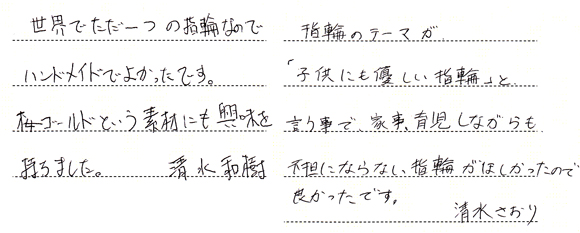 世界でただ一つの指輪なので
ハンドメイドでよかったです。
杢ゴールドという素材にも興味を
持ちました。 清水和樹
指輪のテーマが
「子供にも優しい指輪」と
言う事で、家事、育児しながらも
不担にならない指輪がほしかったので
良かったです。
清水さおり